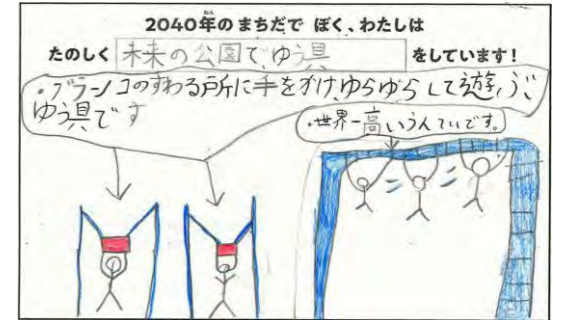 2040年のまちだで ぼく、わたしは
たのしく 未来の公園で、ゆう具 をしています!
・ブランコのすわる所に手をかけ、ゆらゆらして遊ぶ、
ゆう具です
・世界一高いうんていです。